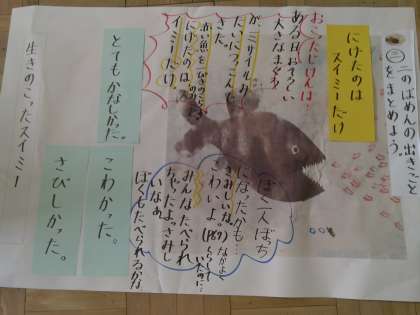 二のばめん 出きごと
をまとめよう。
にげたのは
スイミーだけ
おこったじけんは
ある日、おそろしい
大きなまぐろ
が、ミサイルみ
たいにつっこんで
きた。
赤い魚を
にげたのは
スイミーだけ。
とても かなしかった。
こわかった。
さびしかった。
生きのこったスイミー
ぼく一人ぼっち
になったかも…
さみしいな。
こわいよ。
みんなたべられ
ちゃったよ。さみし
いなあ。
ぼくもたべられるかな